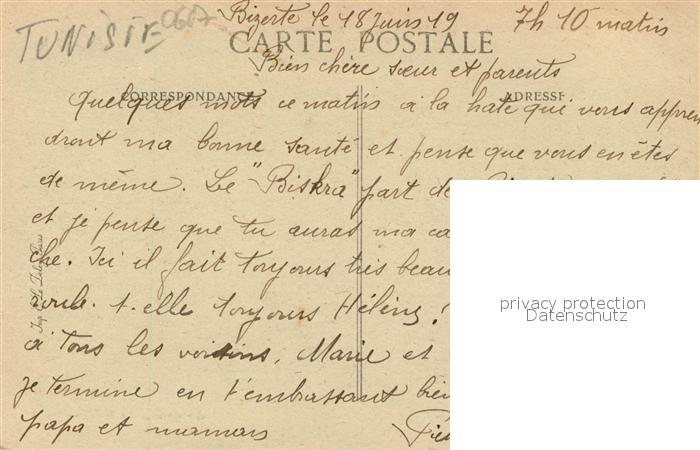 TUNISIE 0607
Bizerte le 18 juin 19 7h 10 matin
CARTE POSTALE
Bien chère sœur et parents
CORRESPONDANCE ADRESSE
Quelques mots ce matin à la hate qui vous appren
dront ma bonne santé et pense que vous en êtes
de même. Le "Biskra" part de
et je pense que tu auras ma ca
che. Ici il fait toujours très beau
roule-t-elle toujours Hélène?
à tous les voisins, Marie et
je termine en t'embrassant bien
papa et maman
privacy protection
Datenschutz